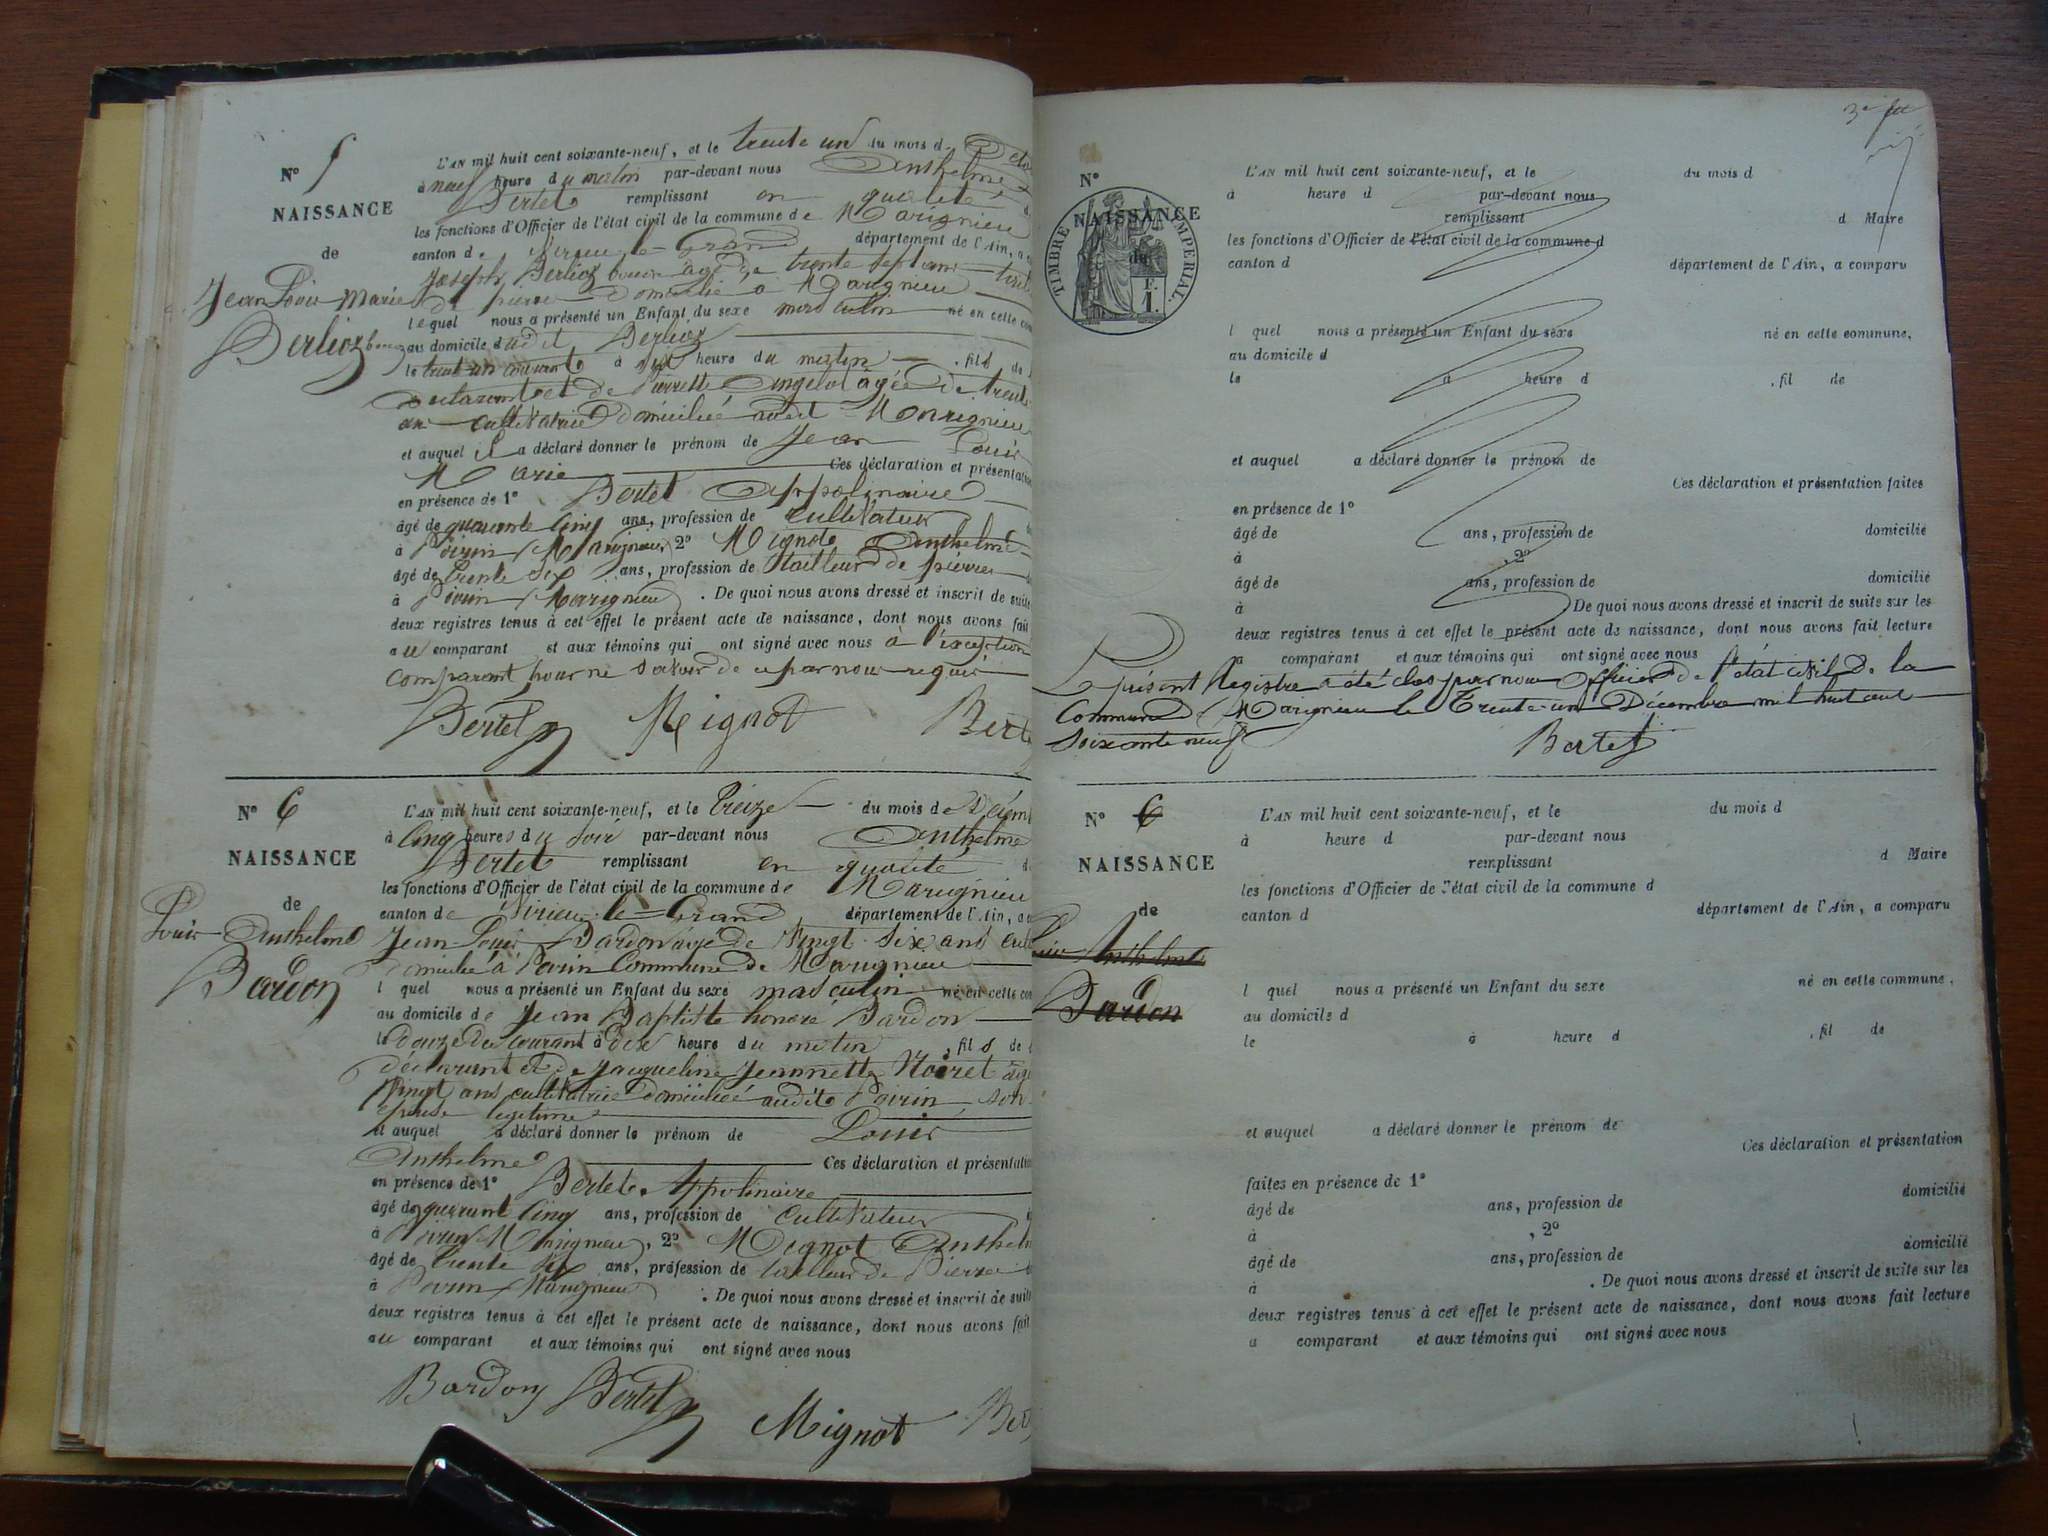 N° 5
NAISSANCE
de
Jean Louis Marie
Berlioz
L'AN mil huit cent soixante-neuf, et le trente un du mois d
à neuf heure du matin par-devant nous Anthelme
Bertet remplissant en qualité
les fonctions d'Officier de l'état civil de la commune de Marignieu
canton de Virieu-le-Grand département de l'Ain, a
Joseph Berlioz agé de trente sept ans
de pierre domicilié à Marignieu
lequel nous a présenté un Enfant du sexe masculin né en cette
au domicile dudit Berlioz
le trente un courant à six heure du matin , fils de
déclarant et de Pierrette agée de trente
an cultivatrice domiciliée audit Marignieu
et auquel il a déclaré donner le prénom de Jean Louis
Marie Ces déclaration et présentation
en présence de 1° Bertet Appolinaire
âgé de quarante cinq ans, profession de cultivateur
à Poirin Marignieu, 2° Mignot Anthelme
âgé de trente six ans, profession de tailleur de pierres
à Poirin Marignieu . De quoi nous avons dressé et inscrit de suite
deux registres tenus à cet effet le présent acte de naissance, dont nous avons fait
au comparant et aux témoins qui ont signé avec nous à l'exception
comparant pour ne savoir de ce par nous requis
Bertet Mignot
N° 6
NAISSANCE
de
Louis Anthelme
Bardon
L'AN mil huit cent soixante-neuf, et le treize du mois de
à cinq heures du soir par-devant nous Anthelme
Bertet remplissant en qualité
les fonctions d'Officier de l'état civil de la commune de Marignieu
canton de Virieu-le-Grand département de l'Ain, a
Jean Louis Bardon agé de vingt six ans
domicilié à Poirin Commune de Marignieu
l quel nous a présenté un Enfant du sexe masculin né en cette
au domicile de Jean Baptiste honoré Bardon
le douze du courant à dix heure du matin , fils de
déclarant et de Jacqueline Jeannette Noiret
vingt ans cultivatrice domiciliée audit Poirin son
épouse légitime
et auquel a déclaré donner le prénom de Louis
Anthelme Ces déclaration et présentation
en présence de 1° Bertet Appolinaire
âgé de quarante cinq ans, profession de cultivateur
à Poirin Marignieu, 2° Mignot
âgé de trente six ans, profession de tailleur de Pierre
à Poirin Marignieu . De quoi nous avons dressé et inscrit de suite
deux registres tenus à cet effet le présent acte de naissance, dont nous avons fait
au comparant et aux témoins qui ont signé avec nous
Bardon Bertet
Mignot
N°
NAISSANCE
de
TIMBRE IMPERIAL.
1 F.
L'AN mil huit cent soixante-neuf, et le du mois d
à heure d par-devant nous
remplissant d Maire
les fonctions d'Officier de l'état civil de la commune d
canton d département de l'Ain, a comparu
l quel nous a présenté un Enfant du sexe né en cette commune,
au domicile d
le à heure d , fil de
et auquel a déclaré donner le prénom de
Ces déclaration et présentation faites
en présence de 1°
âgé de ans, profession de domicilié
à , 2°
âgé de ans, profession de domicilié
à . De quoi nous avons dressé et inscrit de suite sur les
deux registres tenus à cet effet le présent acte de naissance, dont nous avons fait lecture
a comparant et aux témoins qui ont signé avec nous
Le présent Registre a été clos par nous Officier de l'état civil de la
Commune de Marignieu le Trente-un Décembre mil huit cent
soixante neuf
Bertet
N° 6
NAISSANCE
de
Anthelme
Bardon
L'AN mil huit cent soixante-neuf, et le du mois d
à heure d par-devant nous
remplissant d Maire
les fonctions d'Officier de l'état civil de la commune d
canton d département de l'Ain, a comparu
l quel nous a présenté un Enfant du sexe né en cette commune,
au domicile d
le à heure d , fil de
et auquel a déclaré donner le prénom de
Ces déclaration et présentation
faites en présence de 1°
âgé de ans, profession de domicilié
à , 2°
âgé de ans, profession de domicilié
à . De quoi nous avons dressé et inscrit de suite sur les
deux registres tenus à cet effet le présent acte de naissance, dont nous avons fait lecture
a comparant et aux témoins qui ont signé avec nous